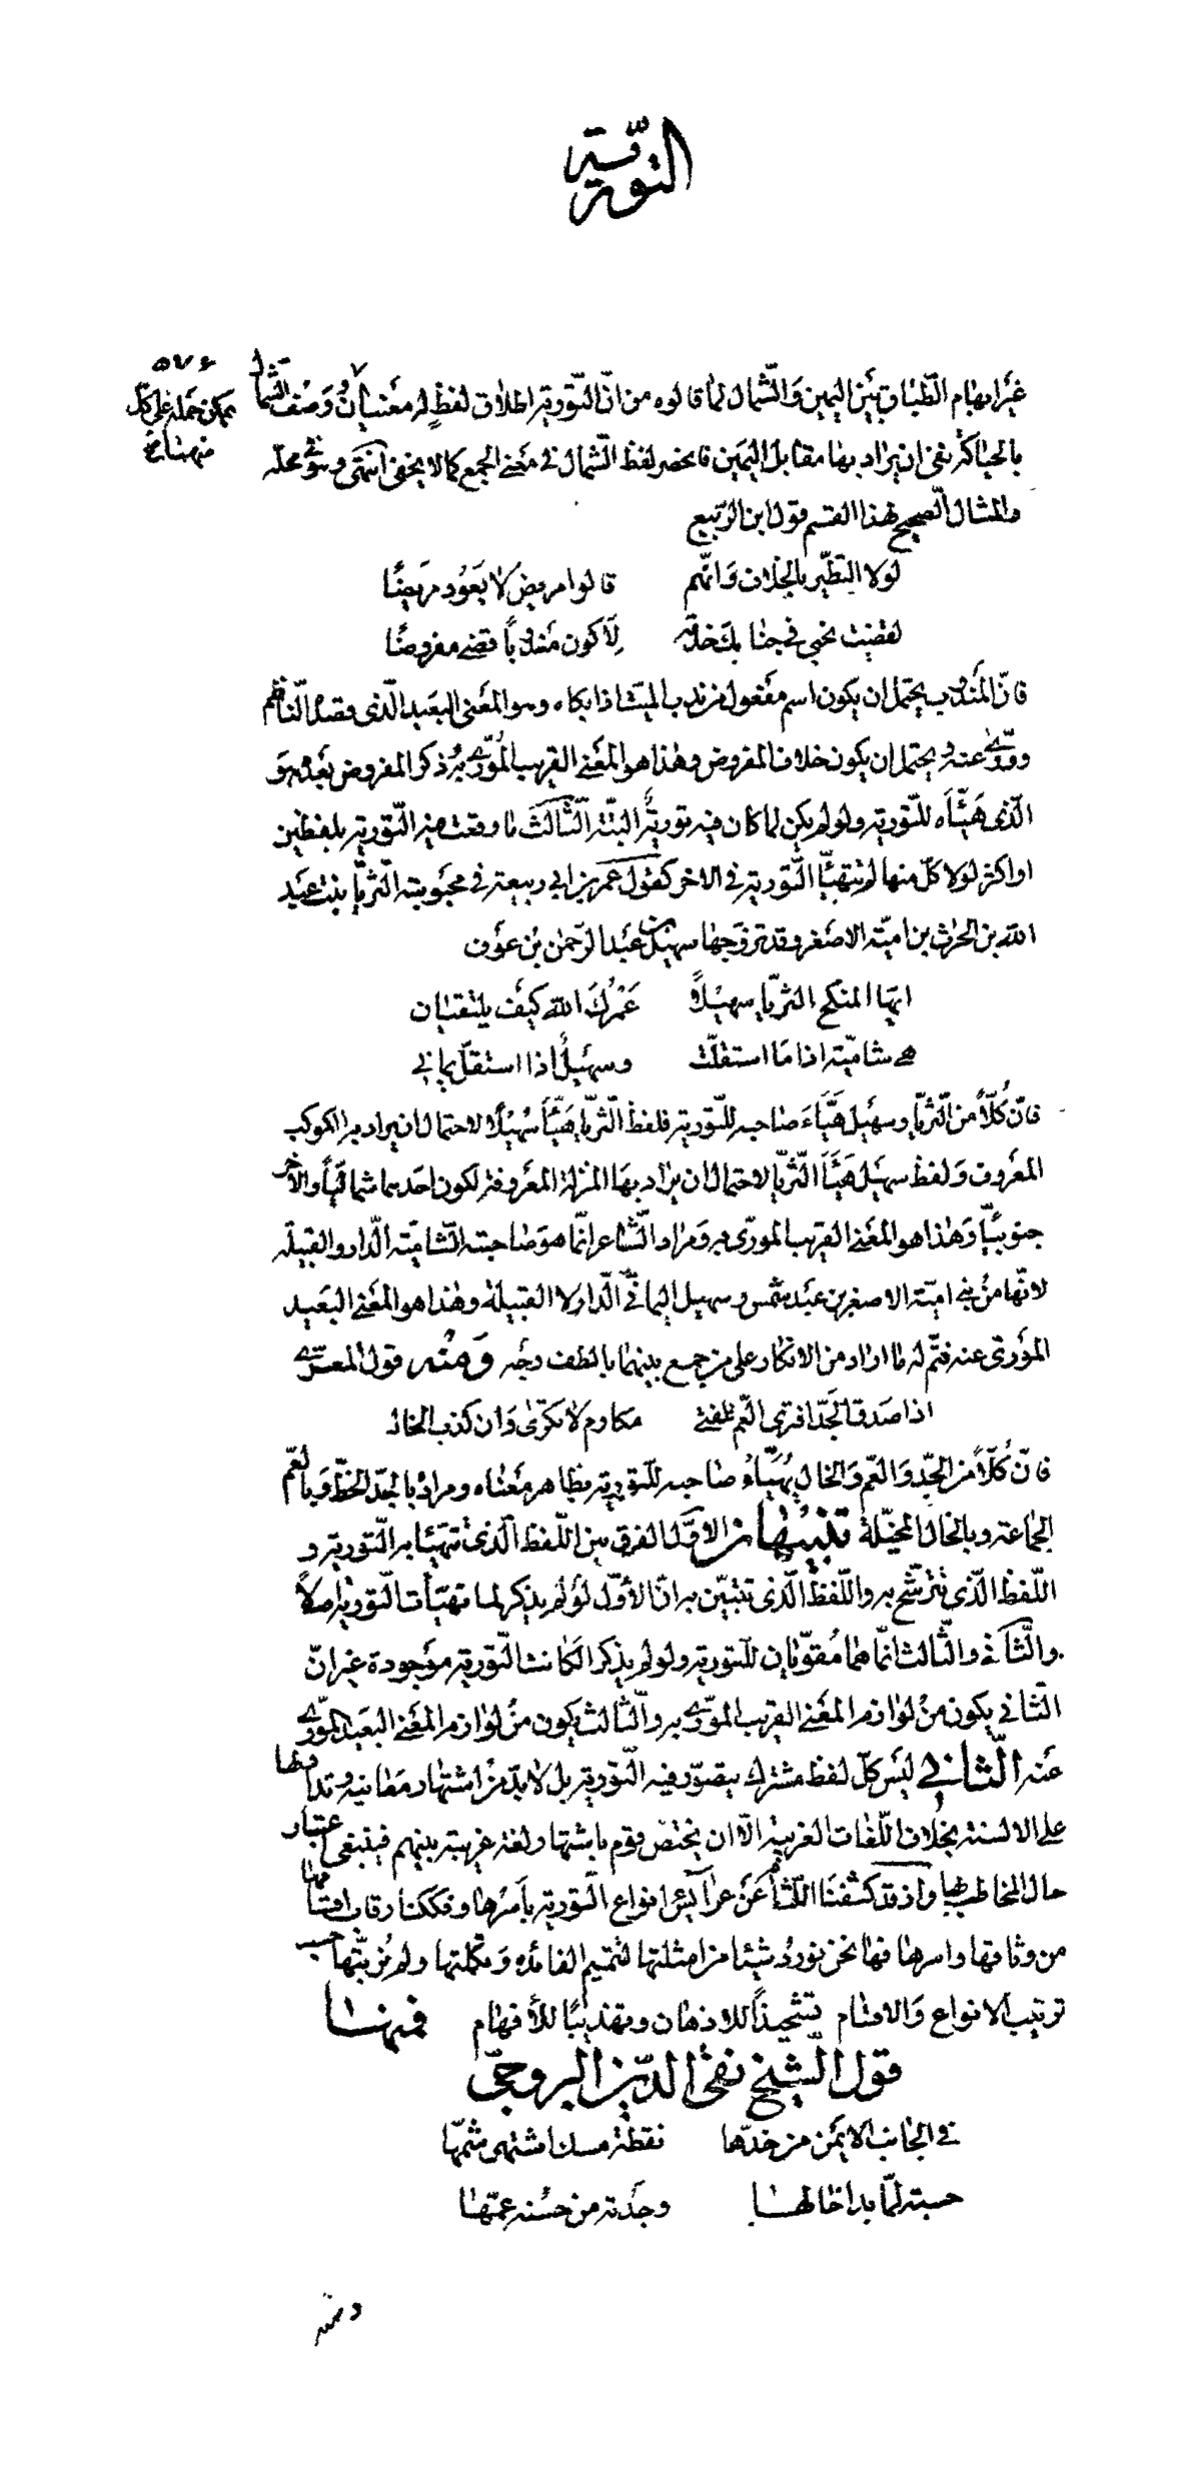 التورية
٥٧٤
غير ايهام الطباق بين اليمين والشمال لما قالوه من انّ التورية اطلاق لفظٍ له معنيان ووصف الشمال
يمكن حمله على كل
منهما
بالحياكة ينفى ان يراد بها مقابل اليمين فانحصر لفظ الشمال فى معنى الجمع كما لا يخفى انتهى وهو فى محله
والمثال الصحيح لهذا القسم قول ابن الربيع
لولا التطيّر بالخلاف وانّهم قالوا مريضٌ لا يَعُود مريضًا
لقضيت نحبى فى جنابك خدمةً لِأكون مندوبًا قضى مفروضًا
فانّ المندوب يحتمل ان يكون اسم مفعول من ندب الميت اذا بكاه وهو المعنى البعيد الّذى قصده النّاظم
وورّى عنه ويحتمل ان يكون خلاف المفروض وهذا هو المعنى القريب المورّى به وذكر المفروض بعده هو
الّذى هيّأه للتّورية ولو لم يكن لما كان فيه توريةٌ البتّة الثّالث ما وقعت فيه التّورية بلفظين
او اكثر لولا كلّ منها لم تتهيّأ التّورية فى الآخر كقول عمر بن ابى ربيعة فى محبوبته الثريّا بنت عبد
الله بن الحرث بن اميّة الاصغر وقد تزوّجها سهيل بن عبد الرّحمن بن عوف
ايّها المنكح الثريّا سهيلًا عَمْرُكَ الله كيف يلتقيان
هى شاميّة اذا ما استقلّت وسهيلٌ اذا استقلّ يمانى
فانّ كُلًّا من الثّريّا وسهيل هيّأ صاحبه للتّورية فلفظ الثّريّا هيّأ سُهيْلًا لاحتمال ان يراد به الكوكب
المعروف ولفظ سهيل هيّأ الثّريّا لاحتمال ان يراد بها المنزلة المعروفة لكون احدهما شماليًّا والآخر
جنوبيًّا وهذا هو المعنى القريب المورّى به ومراد الشّاعر انّما هو صاحبته الشّاميّة الدّار والقبيلة
لانّها من بنى اميّة الاصغر بن عبد شمس وسهيل اليمانىّ الدّار لا القبيلة وهذا هو المعنى البعيد
المورّى عنه فتمّ له ما اراد من الانكار على من جمع بينهما بالطف وجه ومنه قول المعرّى
اذا صدق الجَدّ افترى العمّ للفتى مكارم لا تكرى وان كذب الخال
فانّ كُلًّا من الجدّ والعمّ والخال يُهيّئُ صاحبه للتّورية بظاهر معناه ومراده بالجدّ الحظّ وبالعمّ
الجماعة وبالخال المخيلة تنبيهان الاوّل الفرق بين اللّفظ الّذى تتهيّأ به التّورية و
اللّفظ الّذى تترشّح به واللّفظ الّذى تتبيّن به انّ الأوّل لو لم يذكر لما تهيّأت التّورية اصلاً
والثّانى والثّالث انّما هما مُقوّيان للتّورية ولو لم يذكرا لكانت التّورية موجودة غير انّ
الثّانى يكون من لوازم المعنى القريب المورّى به والثّالث يكون من لوازم المعنى البعيد المورّى
عنه الثّانى ليس كلّ لفظ مشترك يتصوّر فيه التّورية بل لا بدّ من اشتهار معانيه وتداولها
على الالسنة بخلاف اللّغات الغريبة الّا ان يختصّ قوم باشتهار لغة غريبة بينهم فينبغى اعتبار
حال المخاطب بها واذ قد كشفنا اللّثام عن عرائس انواع التّورية بأسرها وفككنا رقاب اقسامها
من وثاقها واسرها فها نحن نورد شيئا من امثلتها لتتميم الفائدة وتكملتها ولم نرتّبها حسب
ترتيب الانواع والاقسام تشحيذاً للاذهان وتهذيبًا للأفهام فمنها
قول الشيخ تقى الدين السروجىّ
فى الجانب الايمن من خدّها نقطة مسك اشتهى شمّها
حسبته لمّا بدا خالها وجدته من حُسْنه عمّها
ومنه